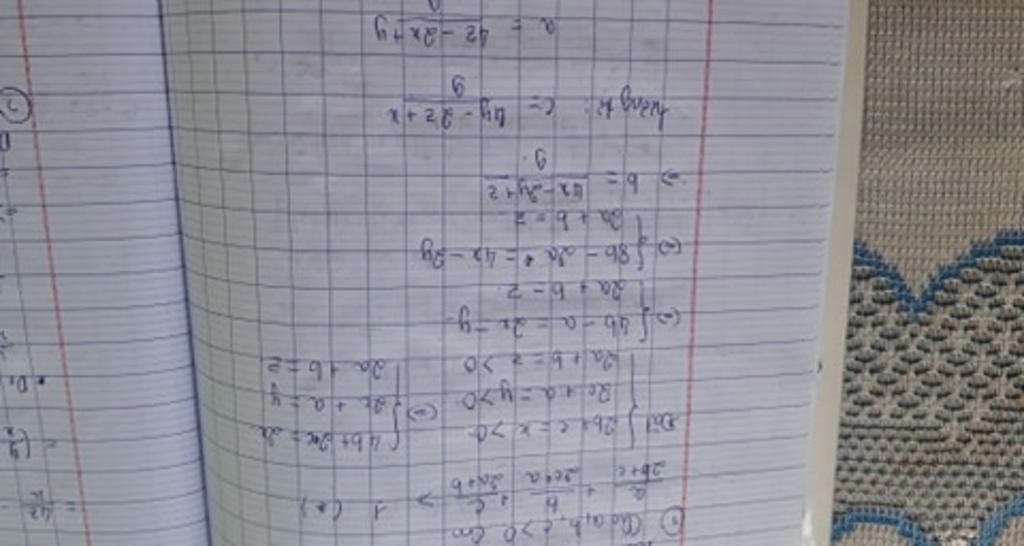 ① Cho a, b, c > 0 Cm
a/(2b+c) + b/(2c+a) + c/(2a+b) ≥ 1 (*)
Đặt { 2b+c = x > 0 (=) { 4b+2c = 2x
2c + a = y > 0 { 2c + a = y
2a + b = z > 0 { 2a + b = z
(=) { 4b - a = 2x - y
2a + b = z
(=) { 8b - 2a = 4x - 2y
2a + b = z
=> b = (4x - 2y + z)/9
tương tự: c = (4y - 2z + x)/9
a = (4z - 2x + y)/9
= 4z/x
②